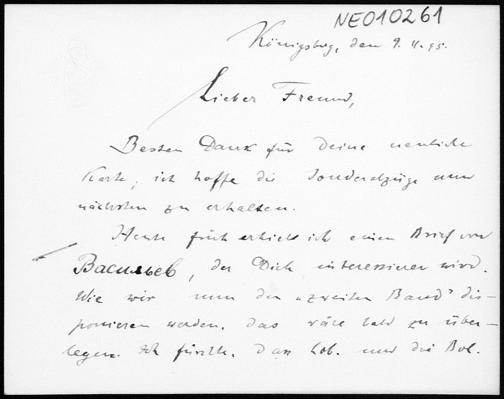 NEO10261
Königsbg, den 9. 4. 95.
Lieber Freund,
Besten Dank für deine neuliche
Karte; ich hoffe die Sonderabzüge nun
nächsten zu erhalten.
Heute früh erhielt ich einen Brief von
Васильев, der Dich interessiren wird.
Wie wir nun den "zweiten Band" dis-
poniren werden, das wäre bald zu über-
legen. Ich fürchte, dass Lob. und die Bol.